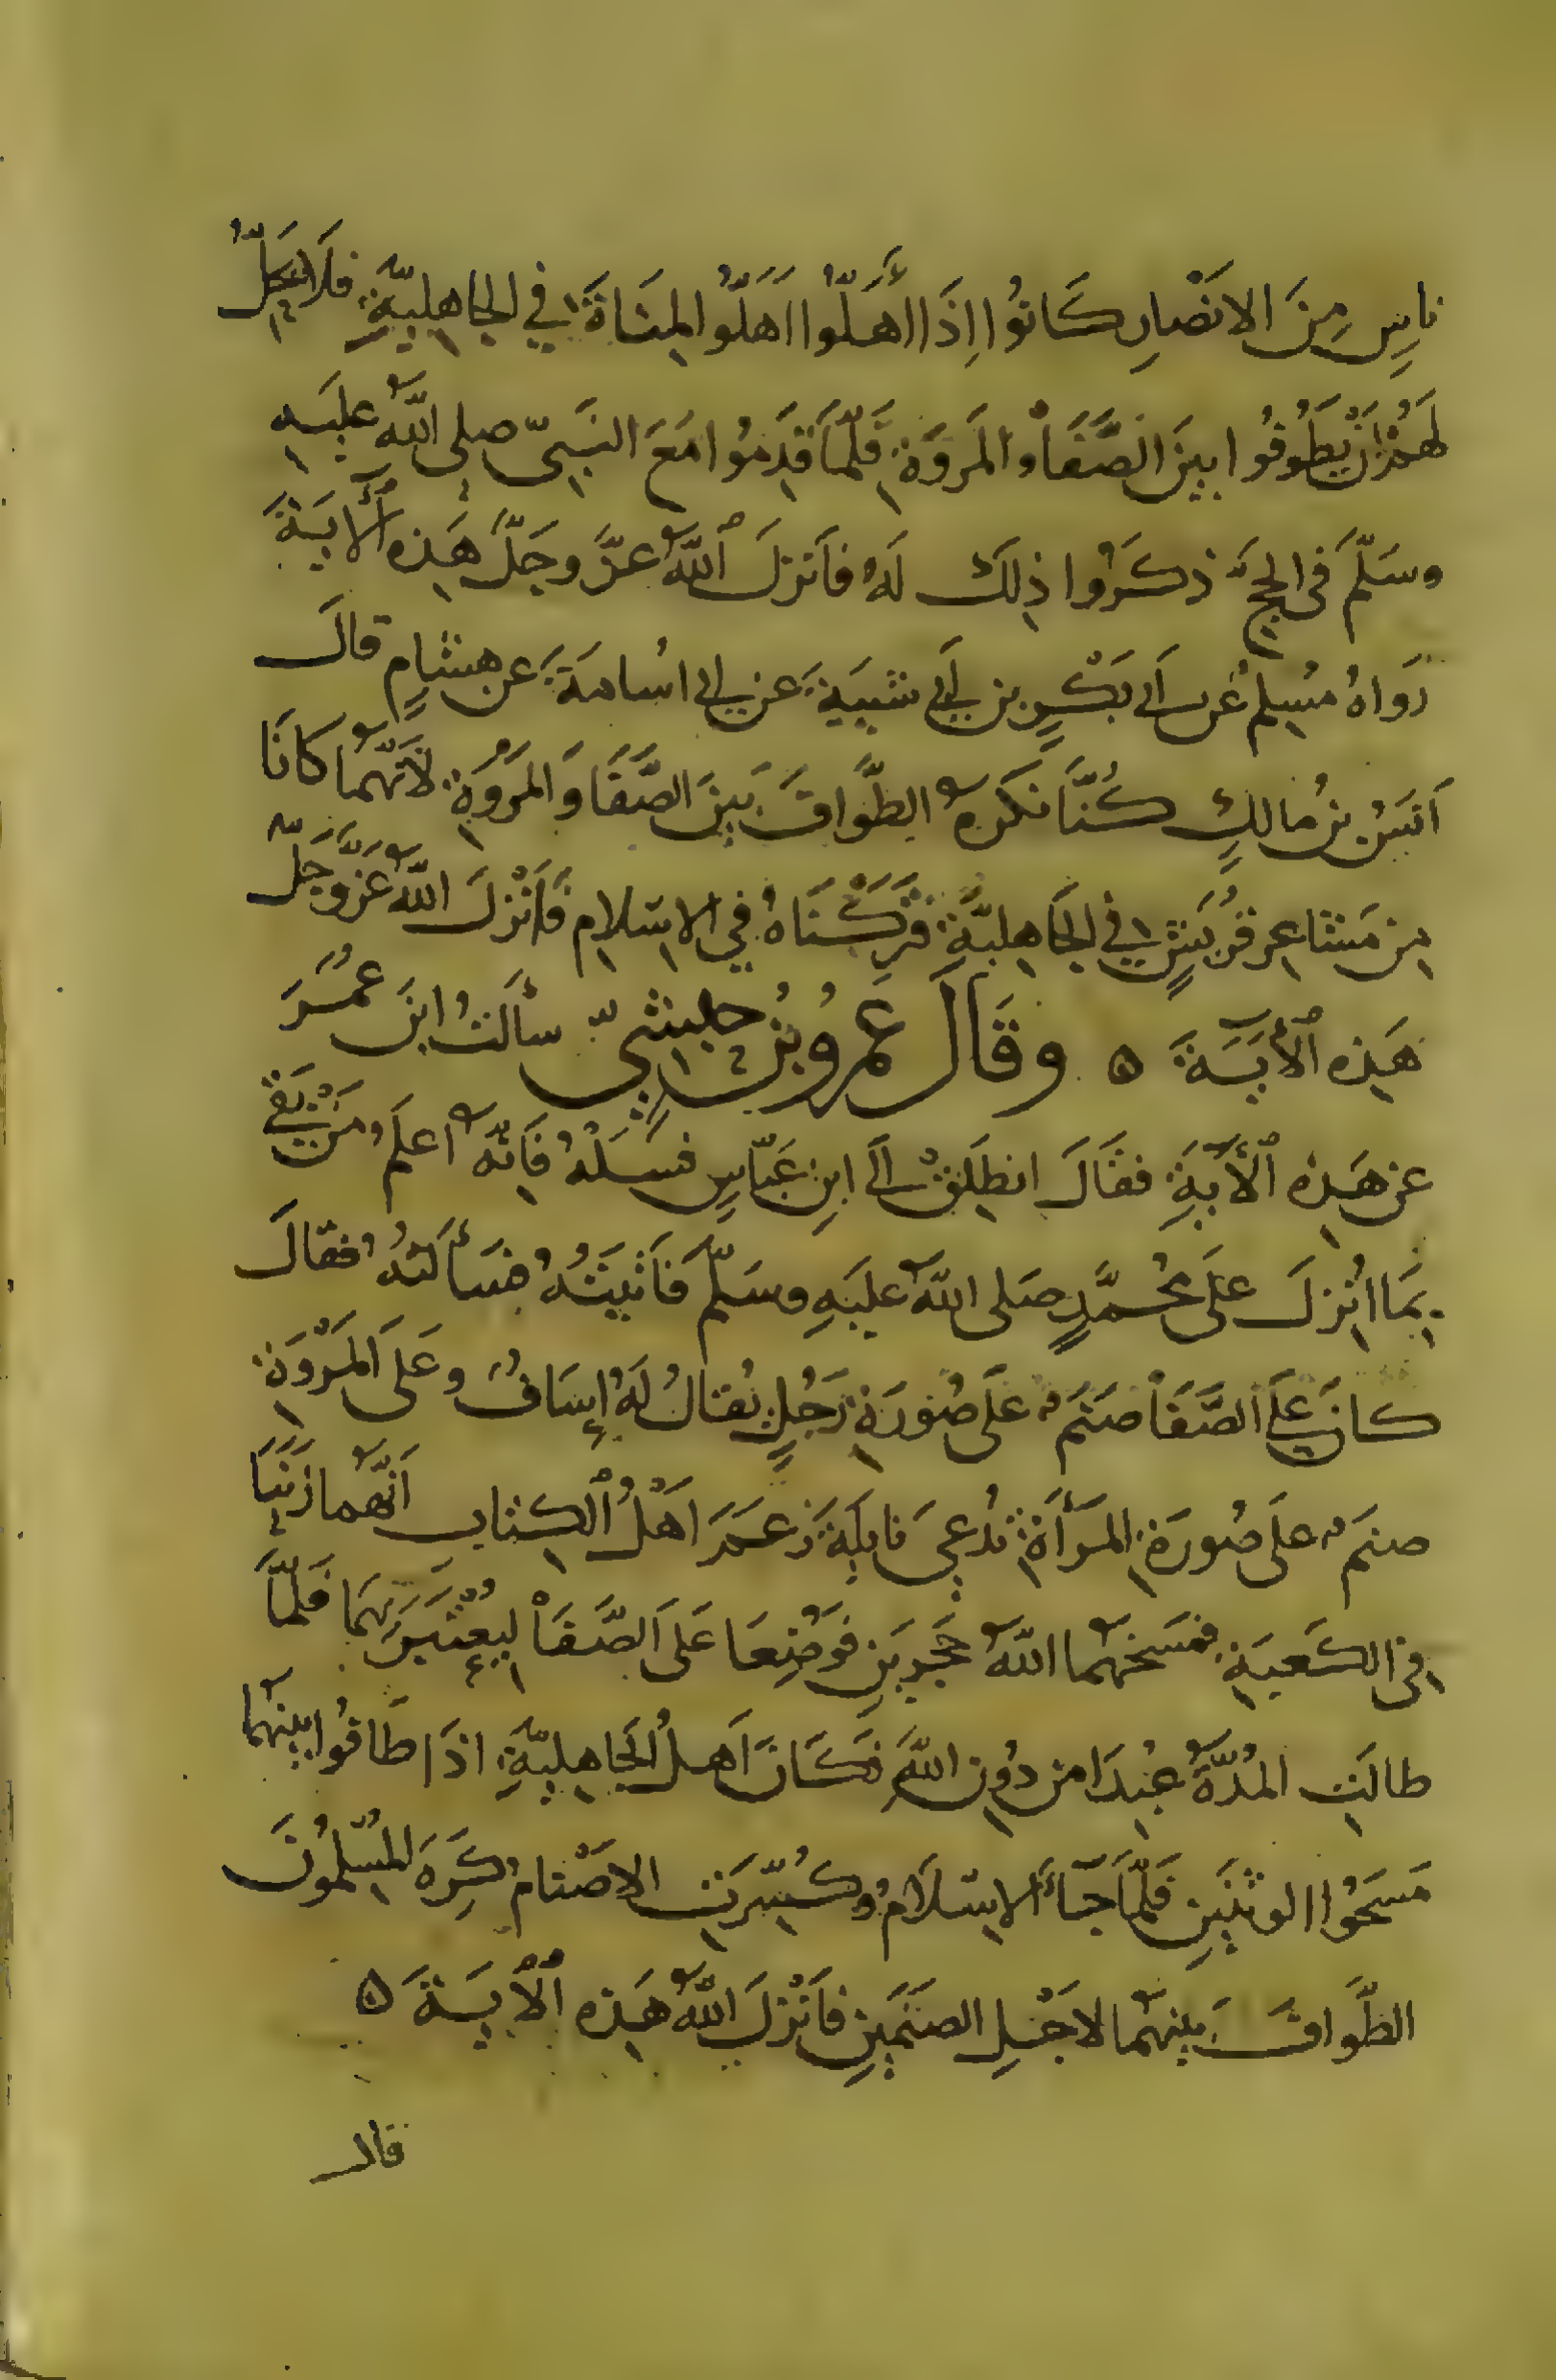 ناسٍ مِنَ الانصَارِ كَانُوا اِذَا أَهَلّوا اَهَلّوا لِمنَاةَ فِي الجاهِليّةِ فلَا يَحِلُّ
لَهُمْ اَنْ يَطَوّفُوا بينَ الصَّفَا والمَروَةِ فَلَمّا قَدِمُوا مَعَ النَبِيّ صلى اللّه عليهِ
وسَلّمَ فى الحجّ ذكَروا ذِلكَ لَهُ فاَنزلَ اللّه عزَّ وجَلَّ هَذِه الآيَةَ
رَواهُ مسُلِم عَن اَبي بَكْرِ بن اَبي شَيبَةَ عن ابي اسُامَةَ عن هشامٍ قالَ
اَنسَُ بنُ مالكٍ كُنَّا نكَرَه الطَّوافَ بَينَ الصَّفَا وَالمَرْوَةِ لاَنَّهُما كانَا
مِن مَشَاعِر قُرَيشٍ فِي الجَاهِليّةِ فتَركْنَاهُ فِي الاِسْلامِ فَاَنْزلَ اللّه عَزَّ وجَلّ
هَذِه الآيَةَ ٥ وقَالَ عَمرُو بنُ حبشِيّ سأَلتُ ابنَ عُمَرَ
عن هَذِه الآيَةِ فقَالَ انطَلِقْ الَى ابنِ عَبّاسٍ فسَلْهُ فَاِنّه اَعلمُ مَنْ بَقِيَ
بِمَا اُنْزِلَ عَلَى مُحمَّدٍ صَلى اللّه عليَهِ وسَلّمَ فَاَتَيتُهُ فسَأَلتُهُ فقالَ
كانَ عَلَى الصَّفَا صَنَمٌ عَلَى صُورَةِ رَجُلٍ يُقالُ لَهُ إِسَافُ وعَلَى المَرْوَةِ
صنَمٌ عَلَى صُورَةِ المَرْأَةِ تُدعَى نايلَة زَعَمَ اَهْلُ الكِتابِ اَنَّهما زَنَيَا
فِى الكَعبَةِ فمَسَخهُما اللّه حَجرَينِ فوُضِعَا عَلَى الصَّفَا لِيُعْتَبَرَ بِهمَا فَلَمّا
طالَتِ المُدّةُ عُبِدَا من دُونِ اللّهِ فَكَانَ اَهلُ الجَاهِليّةِ اذَا طَافُوا بينهُما
مَسَحُوا الوثنَينِ فَلَمّا جَآءَ الاِسْلاَمُ وكُسِّرَتِ الاصْنامُ كَرِهَ المُسْلِمُونَ
الطَّوافَ بينهُما لاجْلِ الصنَمَينِ فاَنْزلَ اللّه هَذِه الآيَةَ ٥
قال